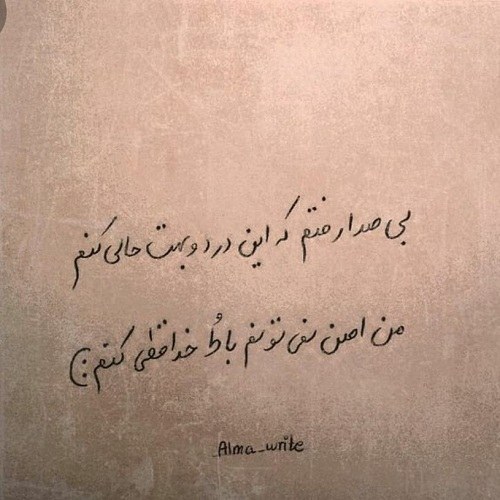 بی صدا رفتم که این درد و بهت حالی کنم
من اصن نمی تونم با تُ خدافظی کنم :)
_Alma_write